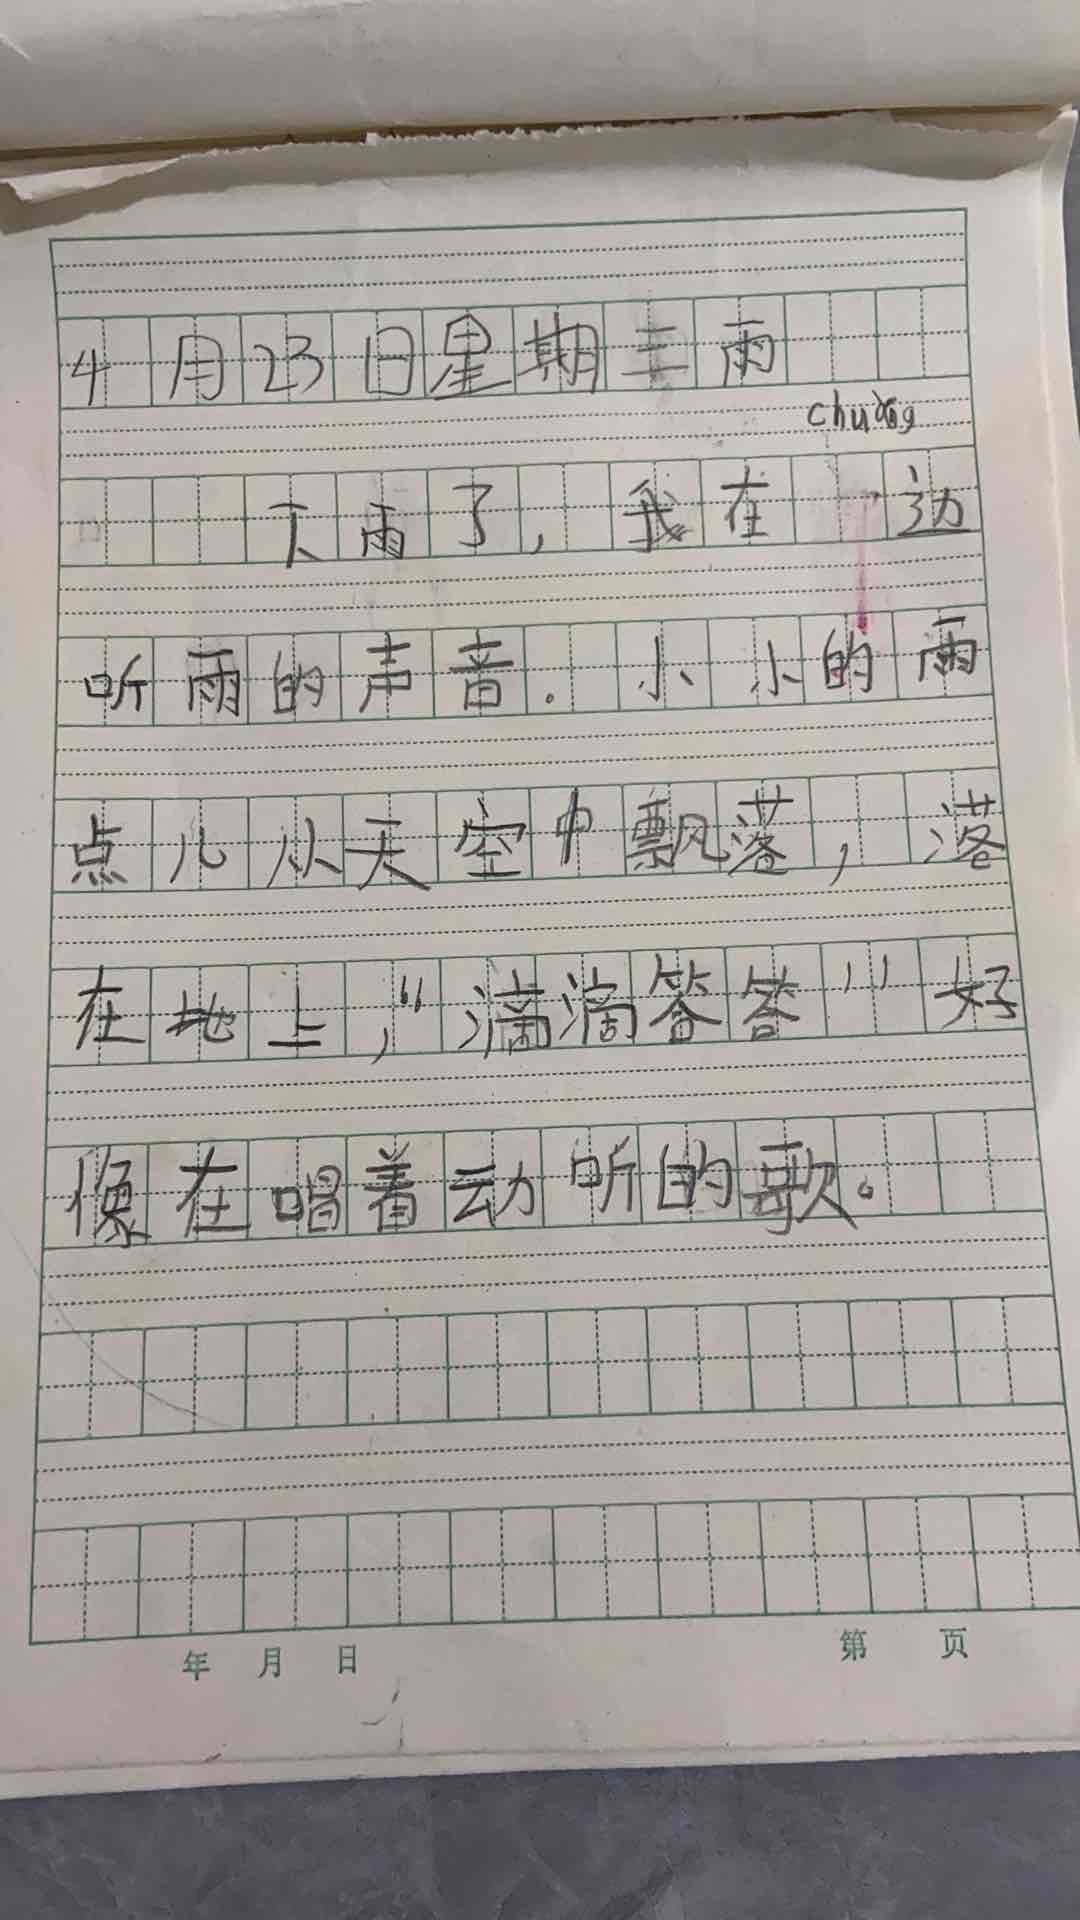 4月23日星期三雨
chuāng
下雨了，我在 边
听雨的声音．小小的雨
点儿从天空中飘落，落
在地上，“滴滴答答”好
像在唱着动听的歌。
年 月 日 第 页